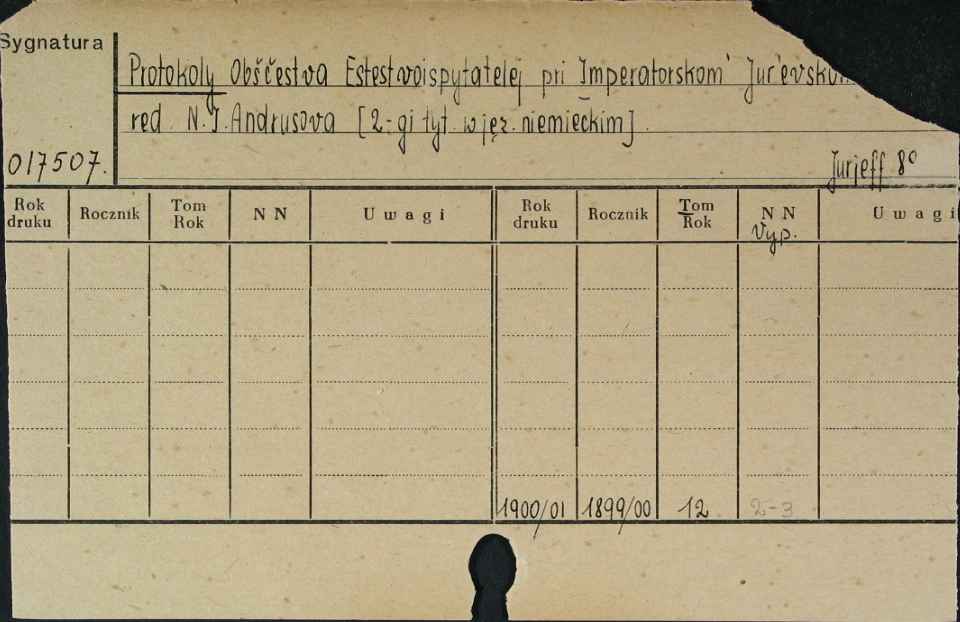 Sygnatura
Protokoly Obščestva Estestvoispytatelej pri Imperatorskom'
red. N. I. Andrusova [2-gi tyt. w jęz. niemieckim].
017507.
Jurjeff 8º
Rok druku Rocznik Tom Rok N N Uwagi Rok druku Rocznik Tom Rok N N Uwagi
Vyp.
1900/01 1899/00 12 2-3